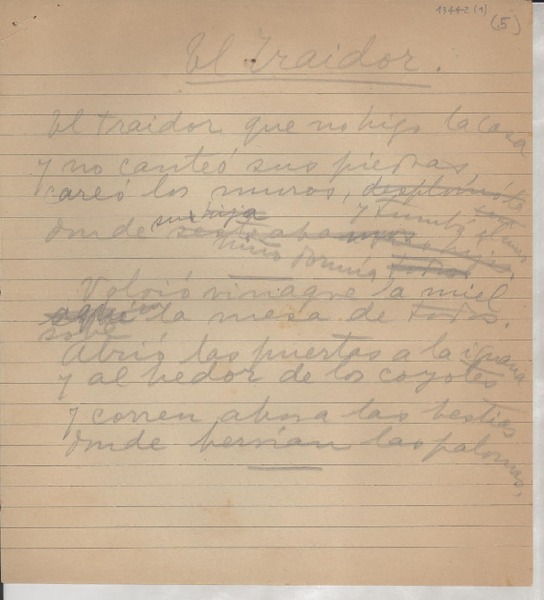 13442 (1)
(5)
El Traidor.
El traidor que no higo la casa
y no canteó sus piedras
careó los muros, desplomó
y tumbó
donde su hija
niño dormía
Volvió vinagre la miel
sobre la mesa de todos.
Abrió las puertas a la iguana
y al hedor de los coyotes
y corren ahora las bestias
donde hervían las palomas,